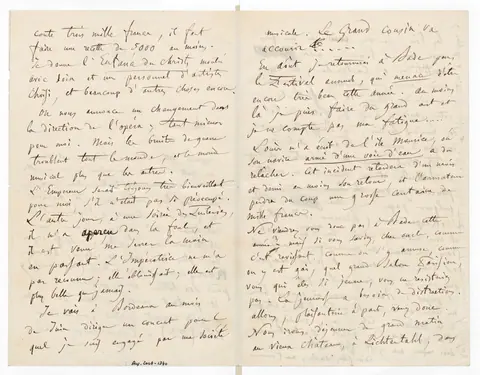 coute trois mille francs, il faut
faire une recette de 5000 au moins.
Je donne l'Enfance du Christ, monté
avec soin et un personnel d'artistes
choisi, et beaucoup d'autres choses encore.
On nous annonce un changement dans
la direction de l'opéra; tant mieux
pour moi. Mais les bruits de guerre
troublent tout le monde, et le monde
musical plus que les autres.
L'Empereur serait toujours très bienveillant
pour moi, s'il n'était pas si préoccupé.
L'autre jour, à une soirée des Tuileries,
il m'a aperçu dans la foule, et
il est venu me serrer la main
en passant. L'Impératrice ne m'a
pas reconnu; elle éblouissait; elle est
plus belle que jamais.
Je vais à Bordeaux au mois
de Juin diriger un concert pour
quel je suis engagé par une société
musicale. Le Grand cousin va
accourir
En août je retournerai à Bade pour
le festival annuel, qui menace d'être
encore très beau cette année. Au moins
là je puis faire du grand art et
je ne compte pas ma fatigue
Louis m'a écrit de l'île Maurice, où
son navire armé d'une voie d'eau a du
relâcher. Cet incident retardera d'un mois
et demi au moins son retour et l'armateur
perdra du coup une grosse centaine de
mille francs.
Ne viendrez vous donc pas à Bade cette
année? mais si vous saviez, cher oncle, comme
c'est ravissant, comme on s'y amuse, comme
on y est gai, quel grand Salon Parisien,
vous, qui êtes si jeune, vous ne résisteriez
pas. La jeunesse a besoin de distractions.
allons, plaisanterie à part, venez donc.
Nous irons déjeuner de grand matin
au vieux château, à Lichtenthal, dans